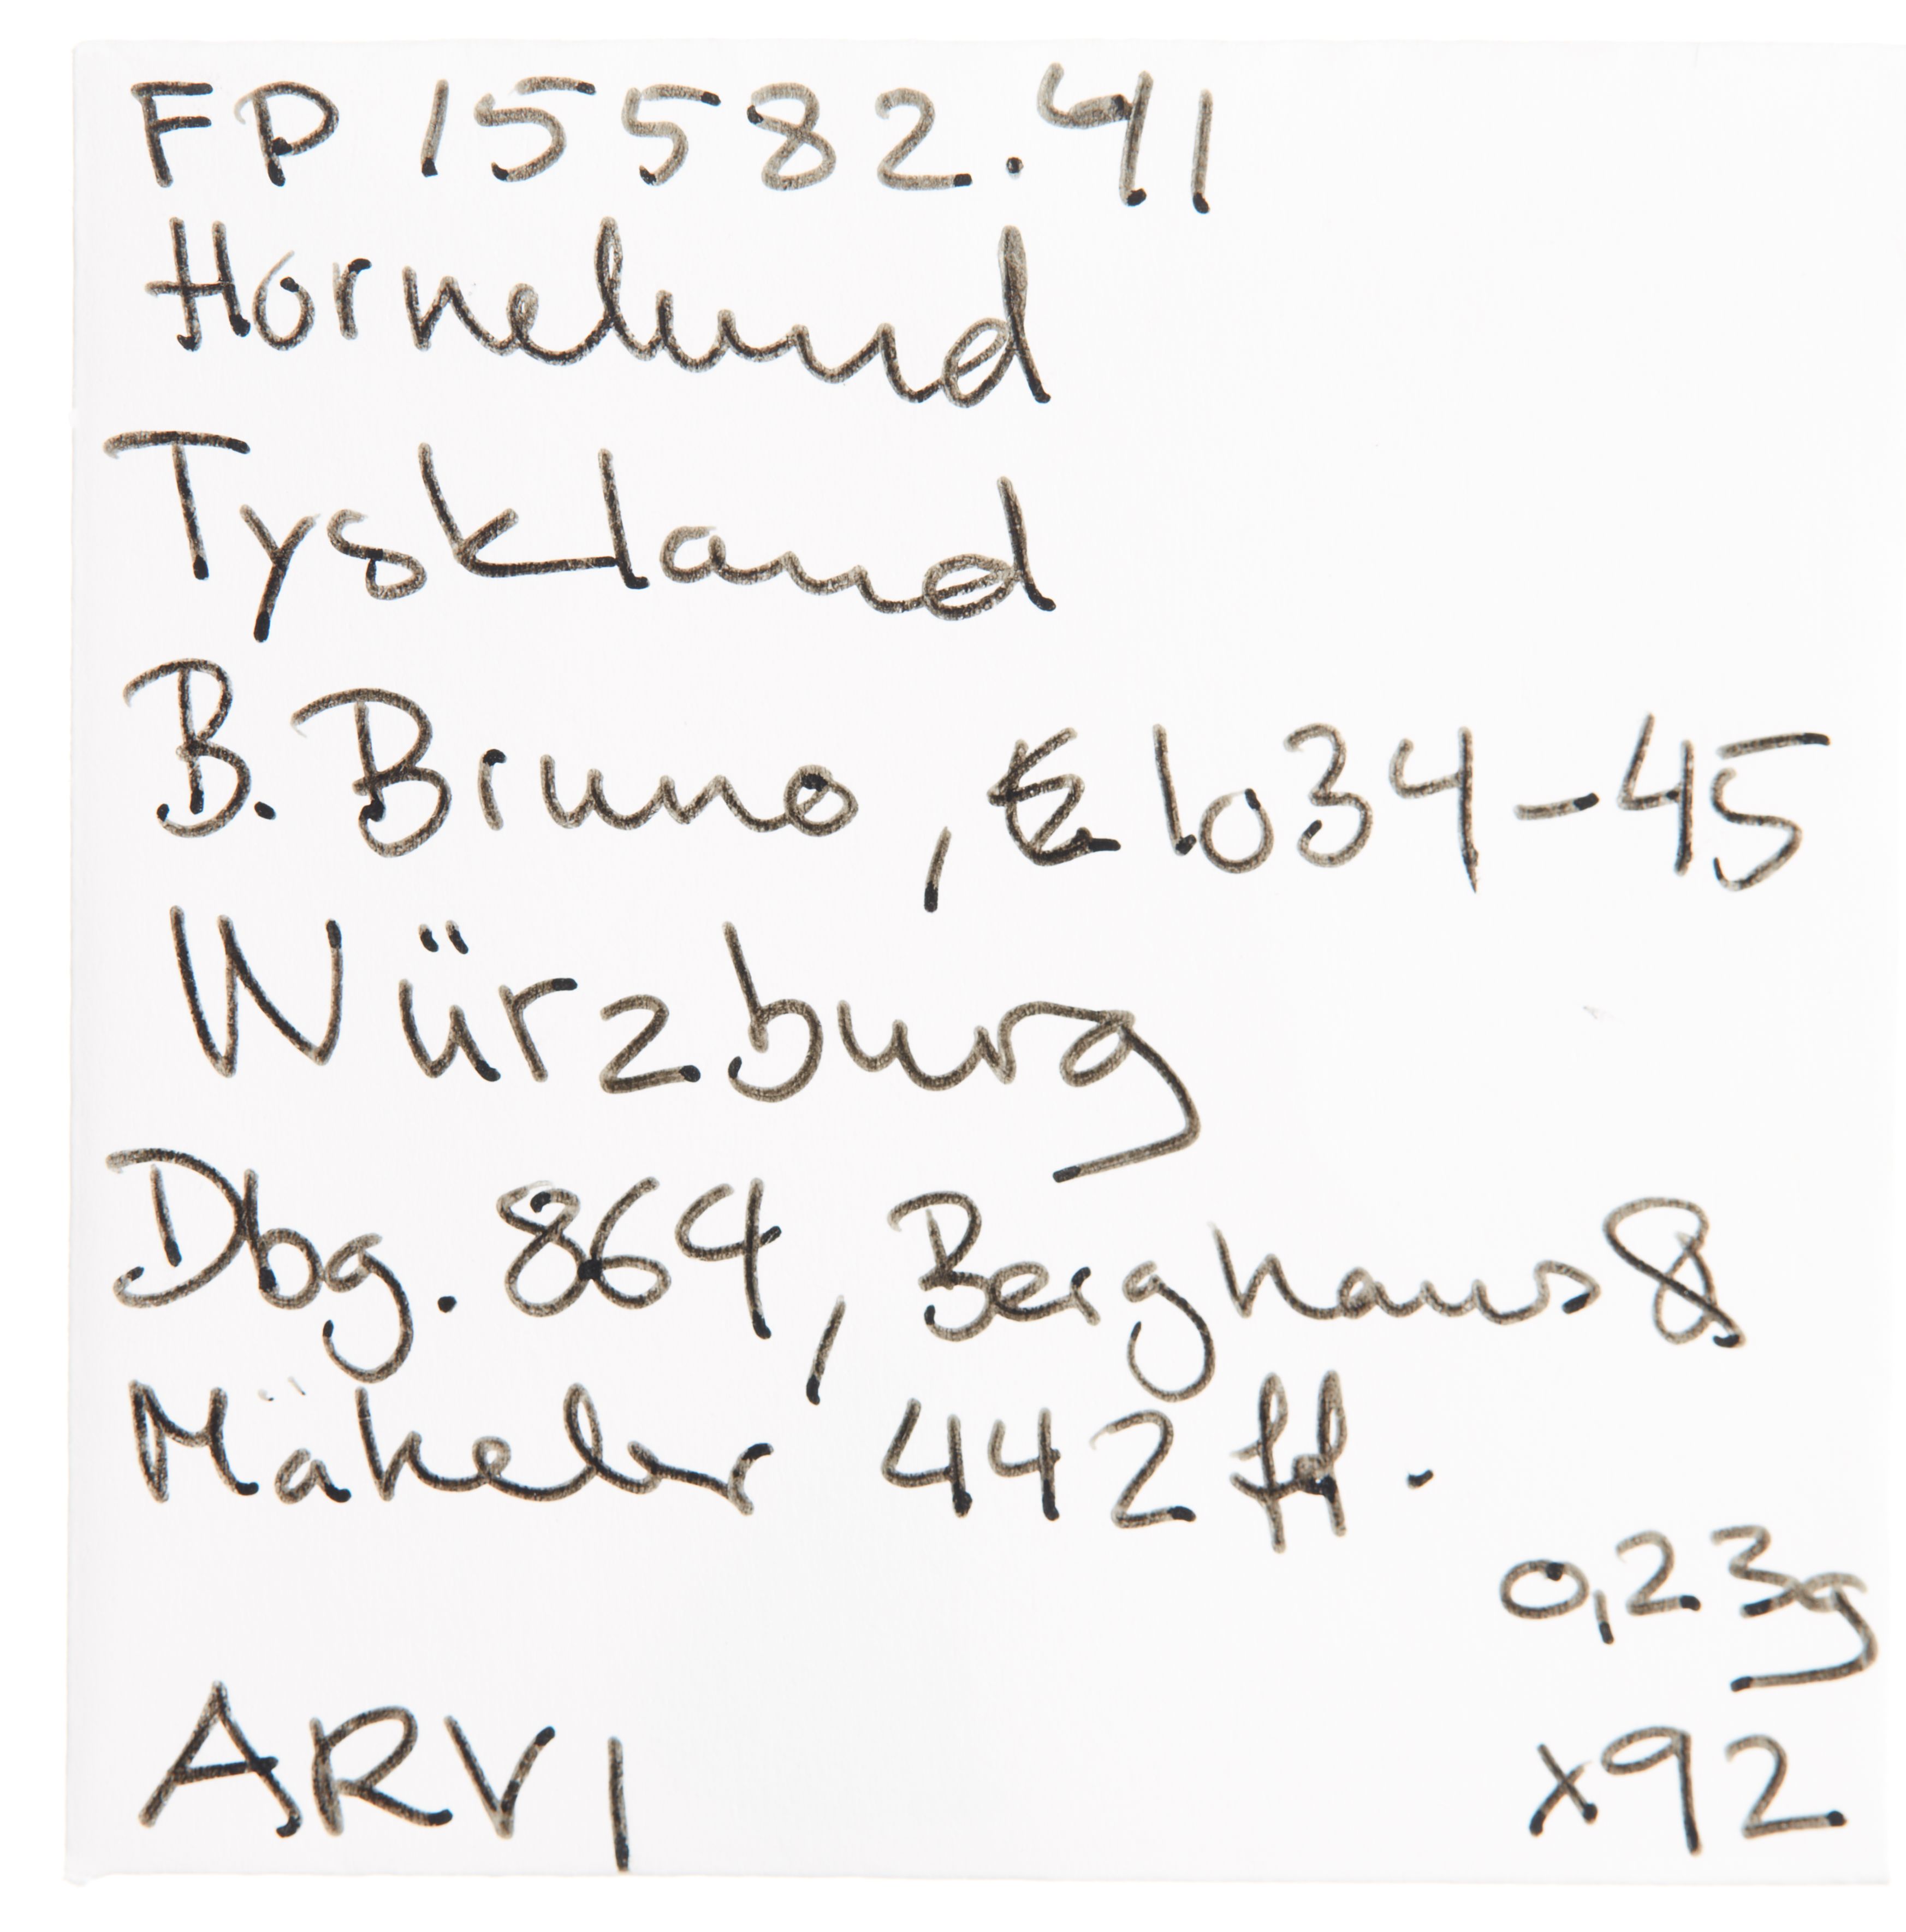 FP 15582.41
Hornelund
Tyskland
B. Bruno, 1034-45
Würzburg
Dbg. 864, Berghaus &
Mäkeler 442 ff.
0,23g
ARV1
x92